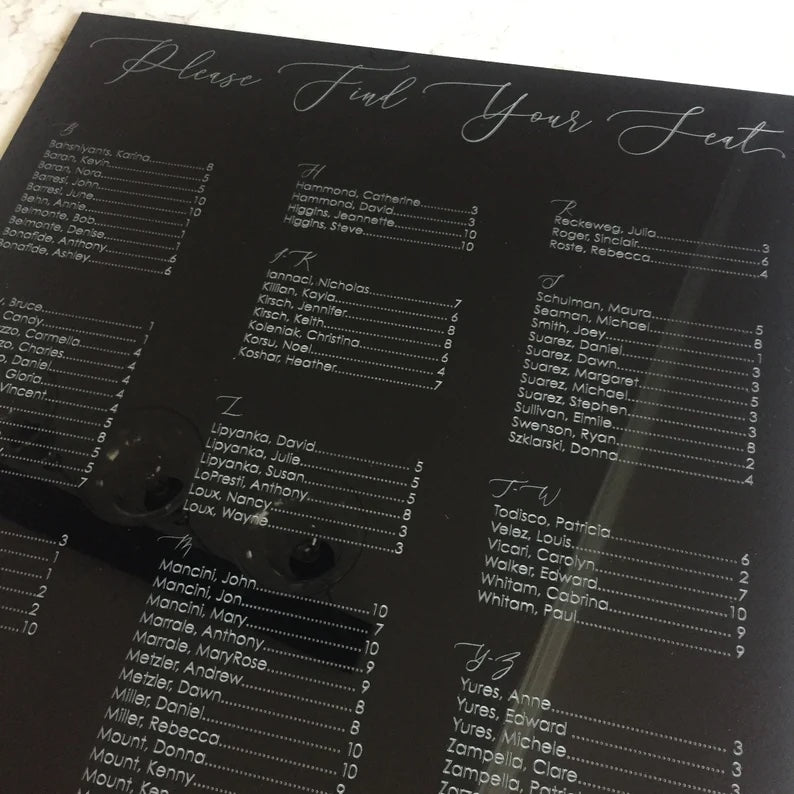 Please Find Your Seat
B
Bahshiyants, Karina 8
Baran, Kevin 5
Baran, Nora 5
Barresi, John 10
Barresi, June 10
Behn, Annie
Belmonte, Bob
Belmonte, Denise 1
Bonafide, Anthony 6
Bonafide, Ashley 6
Bruce 1
Candy
Carmella 4
Charles 4
Daniel 4
Gloria 4
Vincent 4
5
8
5
5
7
3
1
2
2
10
H
Hammond, Catherine 3
Hammond, David 3
Higgins, Jeannette 10
Higgins, Steve 10
I-K
Iannaci, Nicholas 7
Killian, Kayla 6
Kirsch, Jennifer 8
Kirsch, Keith 8
Koleniak, Christina 6
Korsu, Noel 4
Koshar, Heather 7
L
Lipyanka, David 5
Lipyanka, Julie 5
Lipyanka, Susan 5
LoPresti, Anthony 8
Loux, Nancy 3
Loux, Wayne 3
M
Mancini, John 10
Mancini, Jon 7
Mancini, Mary 10
Marrale, Anthony 9
Marrale, MaryRose 9
Metzler, Andrew 8
Metzler, Dawn 8
Miller, Daniel 10
Miller, Rebecca 10
Mount, Donna 10
Mount, Kenny
Mount, Ken
R
Reckeweg, Julia 3
Roger, Sinclair 6
Roste, Rebecca 4
S
Schulman, Maura 5
Seaman, Michael 8
Smith, Joey 1
Suarez, Daniel 3
Suarez, Dawn 3
Suarez, Margaret 5
Suarez, Michael 3
Suarez, Stephen 3
Sullivan, Eimile 8
Swenson, Ryan 2
Szklarski, Donna 4
T-W
Todisco, Patricia 6
Velez, Louis 2
Vicari, Carolyn 7
Walker, Edward 10
Whitam, Cabrina 9
Whitam, Paul 9
Y-Z
Yures, Anne 3
Yures, Edward 3
Yures, Michele 3
Zampella, Clare
Zampella,